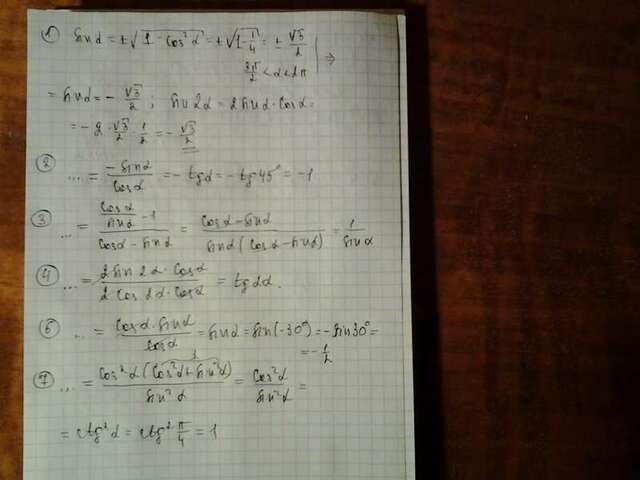 ① sin α = ±√(1 - cos²α) = ±√(1 - 1/4) = ± √3/2 | ⇒
3π/2 < α < 2π
= sin α = - √3/2 ; sin 2α = 2 sin α · cos α =
= - 2 · √3/2 · 1/2 = - √3/2
② ... = -sin α / cos α = - tg α = - tg 45° = -1
③ ... = (cos α / sin α - 1) / (cos α - sin α) = (cos α - sin α) / (sin α (cos α - sin α)) = 1 / sin α
④ ... = 2 sin 2α · cos α / 2 cos 2α · cos α = tg 2α.
⑥ ... = cos α · sin α / cos α = sin α = sin(-30°) = - sin 30° =
= - 1/2
⑦ ... = cos²α (cos²α + sin²α) / sin²α = cos²α / sin²α =
1
= ctg²α = ctg² π/4 = 1